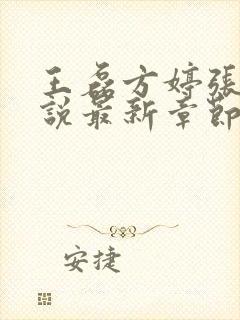 王磊方婷張
說最新章節
安捷